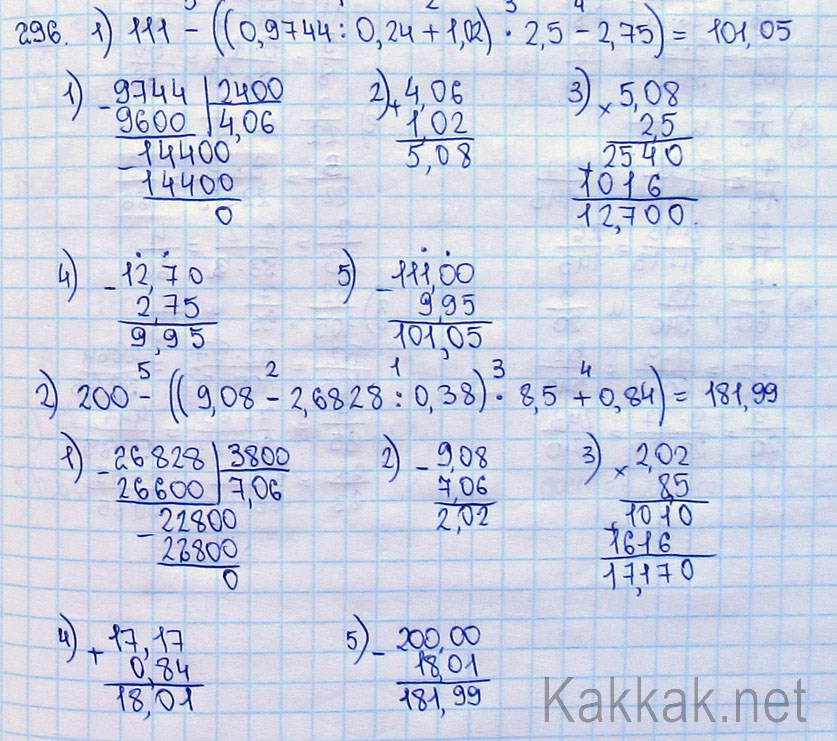 296. 1) 111 - ((0,9744 : 0,24 + 1,02) · 2,5 - 2,75) = 101,05
1) - 9744 | 2400
9600 | 4,06
- 14400
14400
0
2) + 4,06
1,02
5,08
3) × 5,08
2,5
+ 2540
1016
12,700
4) - 12,70
2,75
9,95
5) - 111,00
9,95
101,05
5 2 1 3 4
2) 200 - ((9,08 - 2,6828 : 0,38) · 8,5 + 0,84) = 181,99
1) - 26828 | 3800
26600 | 7,06
- 22800
22800
0
2) - 9,08
7,06
2,02
3) × 2,02
8,5
+ 1010
1616
17,170
4) + 17,17
0,84
18,01
5) - 200,00
18,01
181,99
Kakkak.net